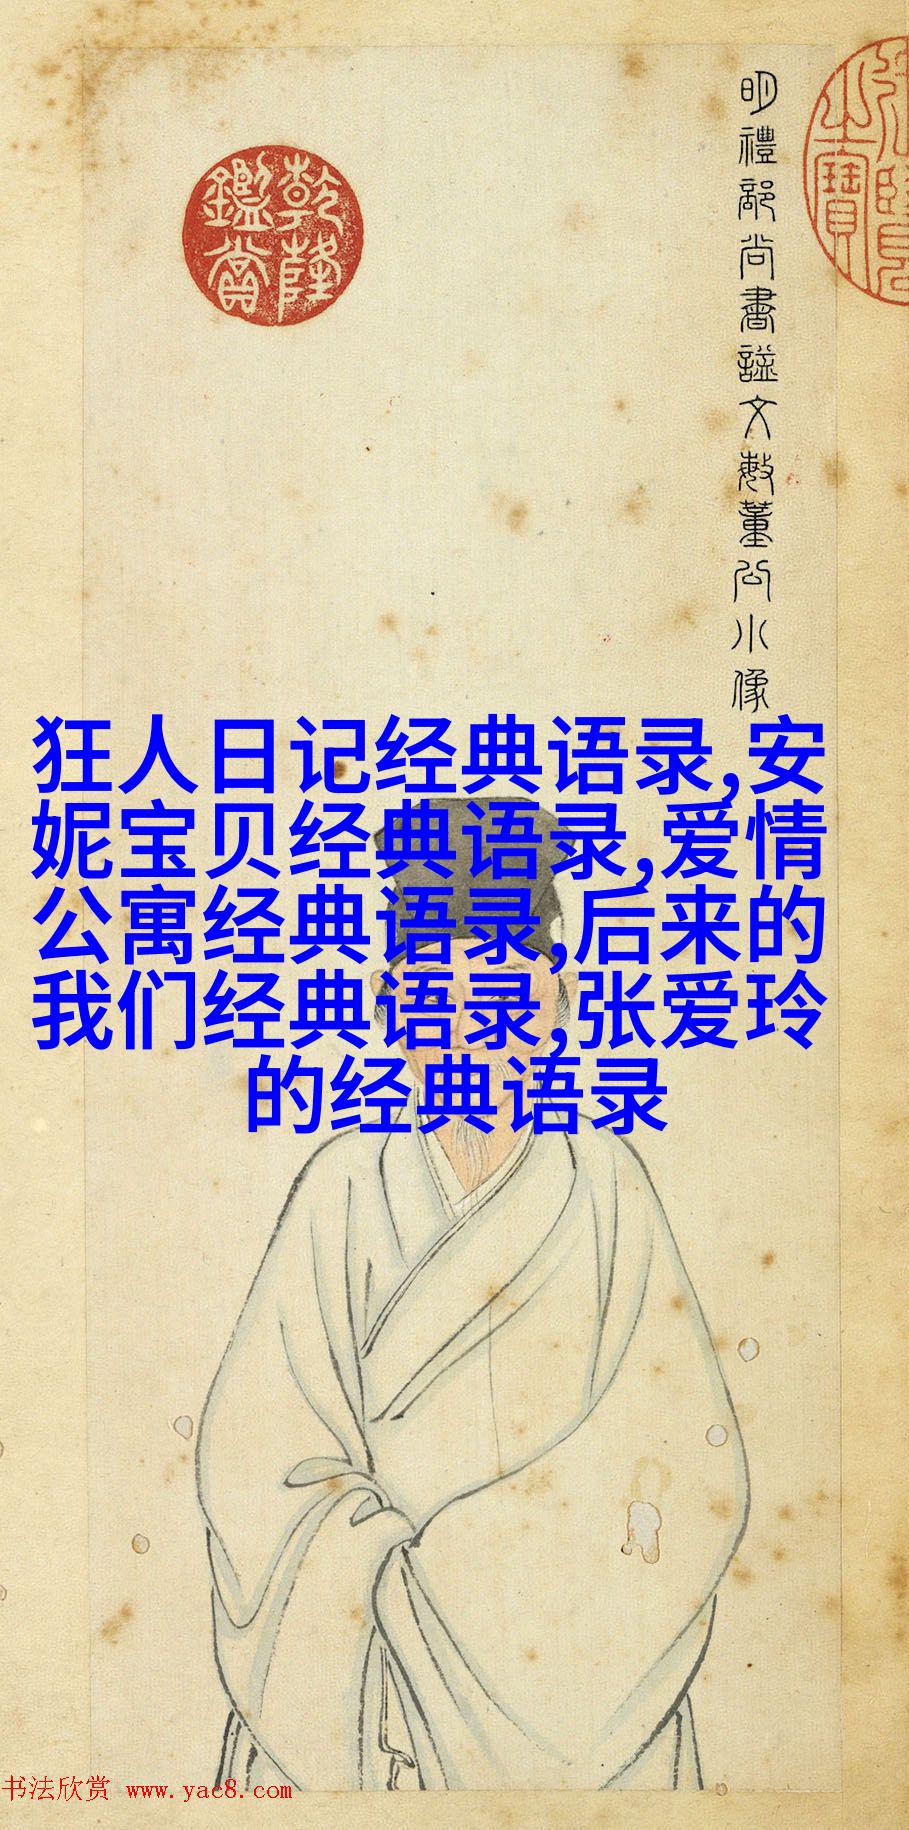 明禮部尚書謚文敏董公小像
乾隆
鑑賞
狂人日记经典语录,安
妮宝贝经典语录,爱情
公寓经典语录,后来的
我们经典语录,张爱玲
的经典语录
书法欣赏 www.yac8.com